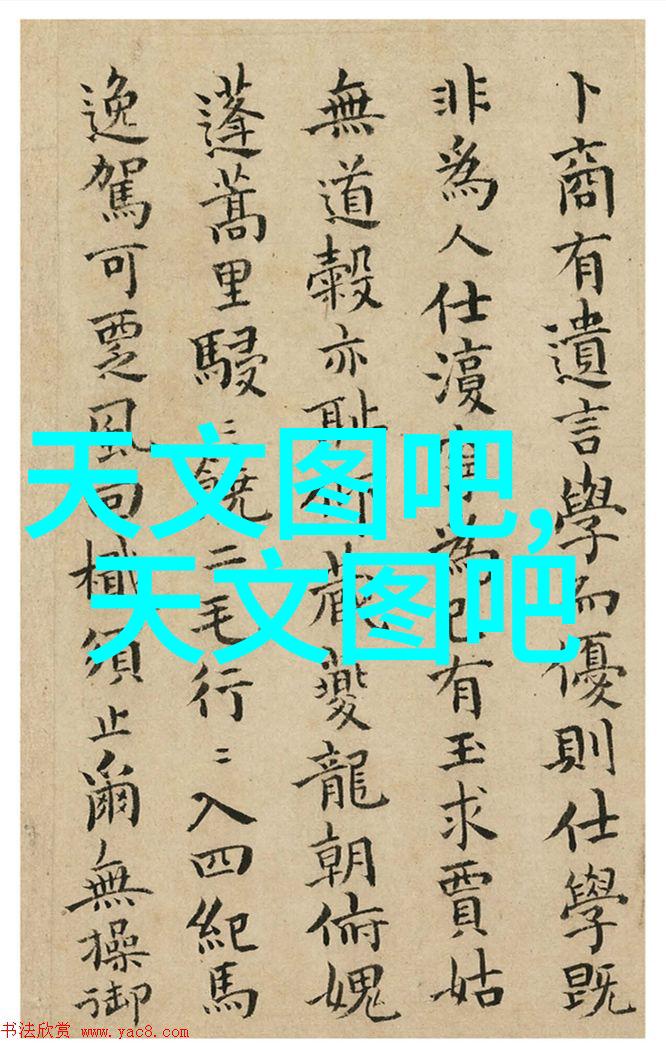 卜商有遺言學而優則仕學既
非為人仕湏為已有玉求賈姑
無道穀亦恥夔龍朝俯媿
蓬蒿里駸〻饒二毛行〻入四紀馬
逸駕可覂風向檝須止爾無操御
天文图吧,
天文图吧
书法欣赏 www.yac8.com